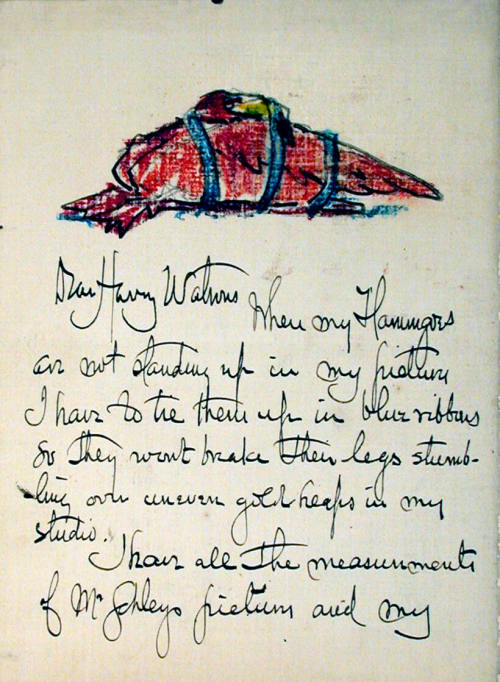 Dear Harry Watrous
When my Flamingoes
are not standing up in my picture
I have to tie them up in blue ribbons
so they wont brake their legs stumb-
ling over uneven gold heaps in my
studio.
I have all the measurements
of Mr picture and my